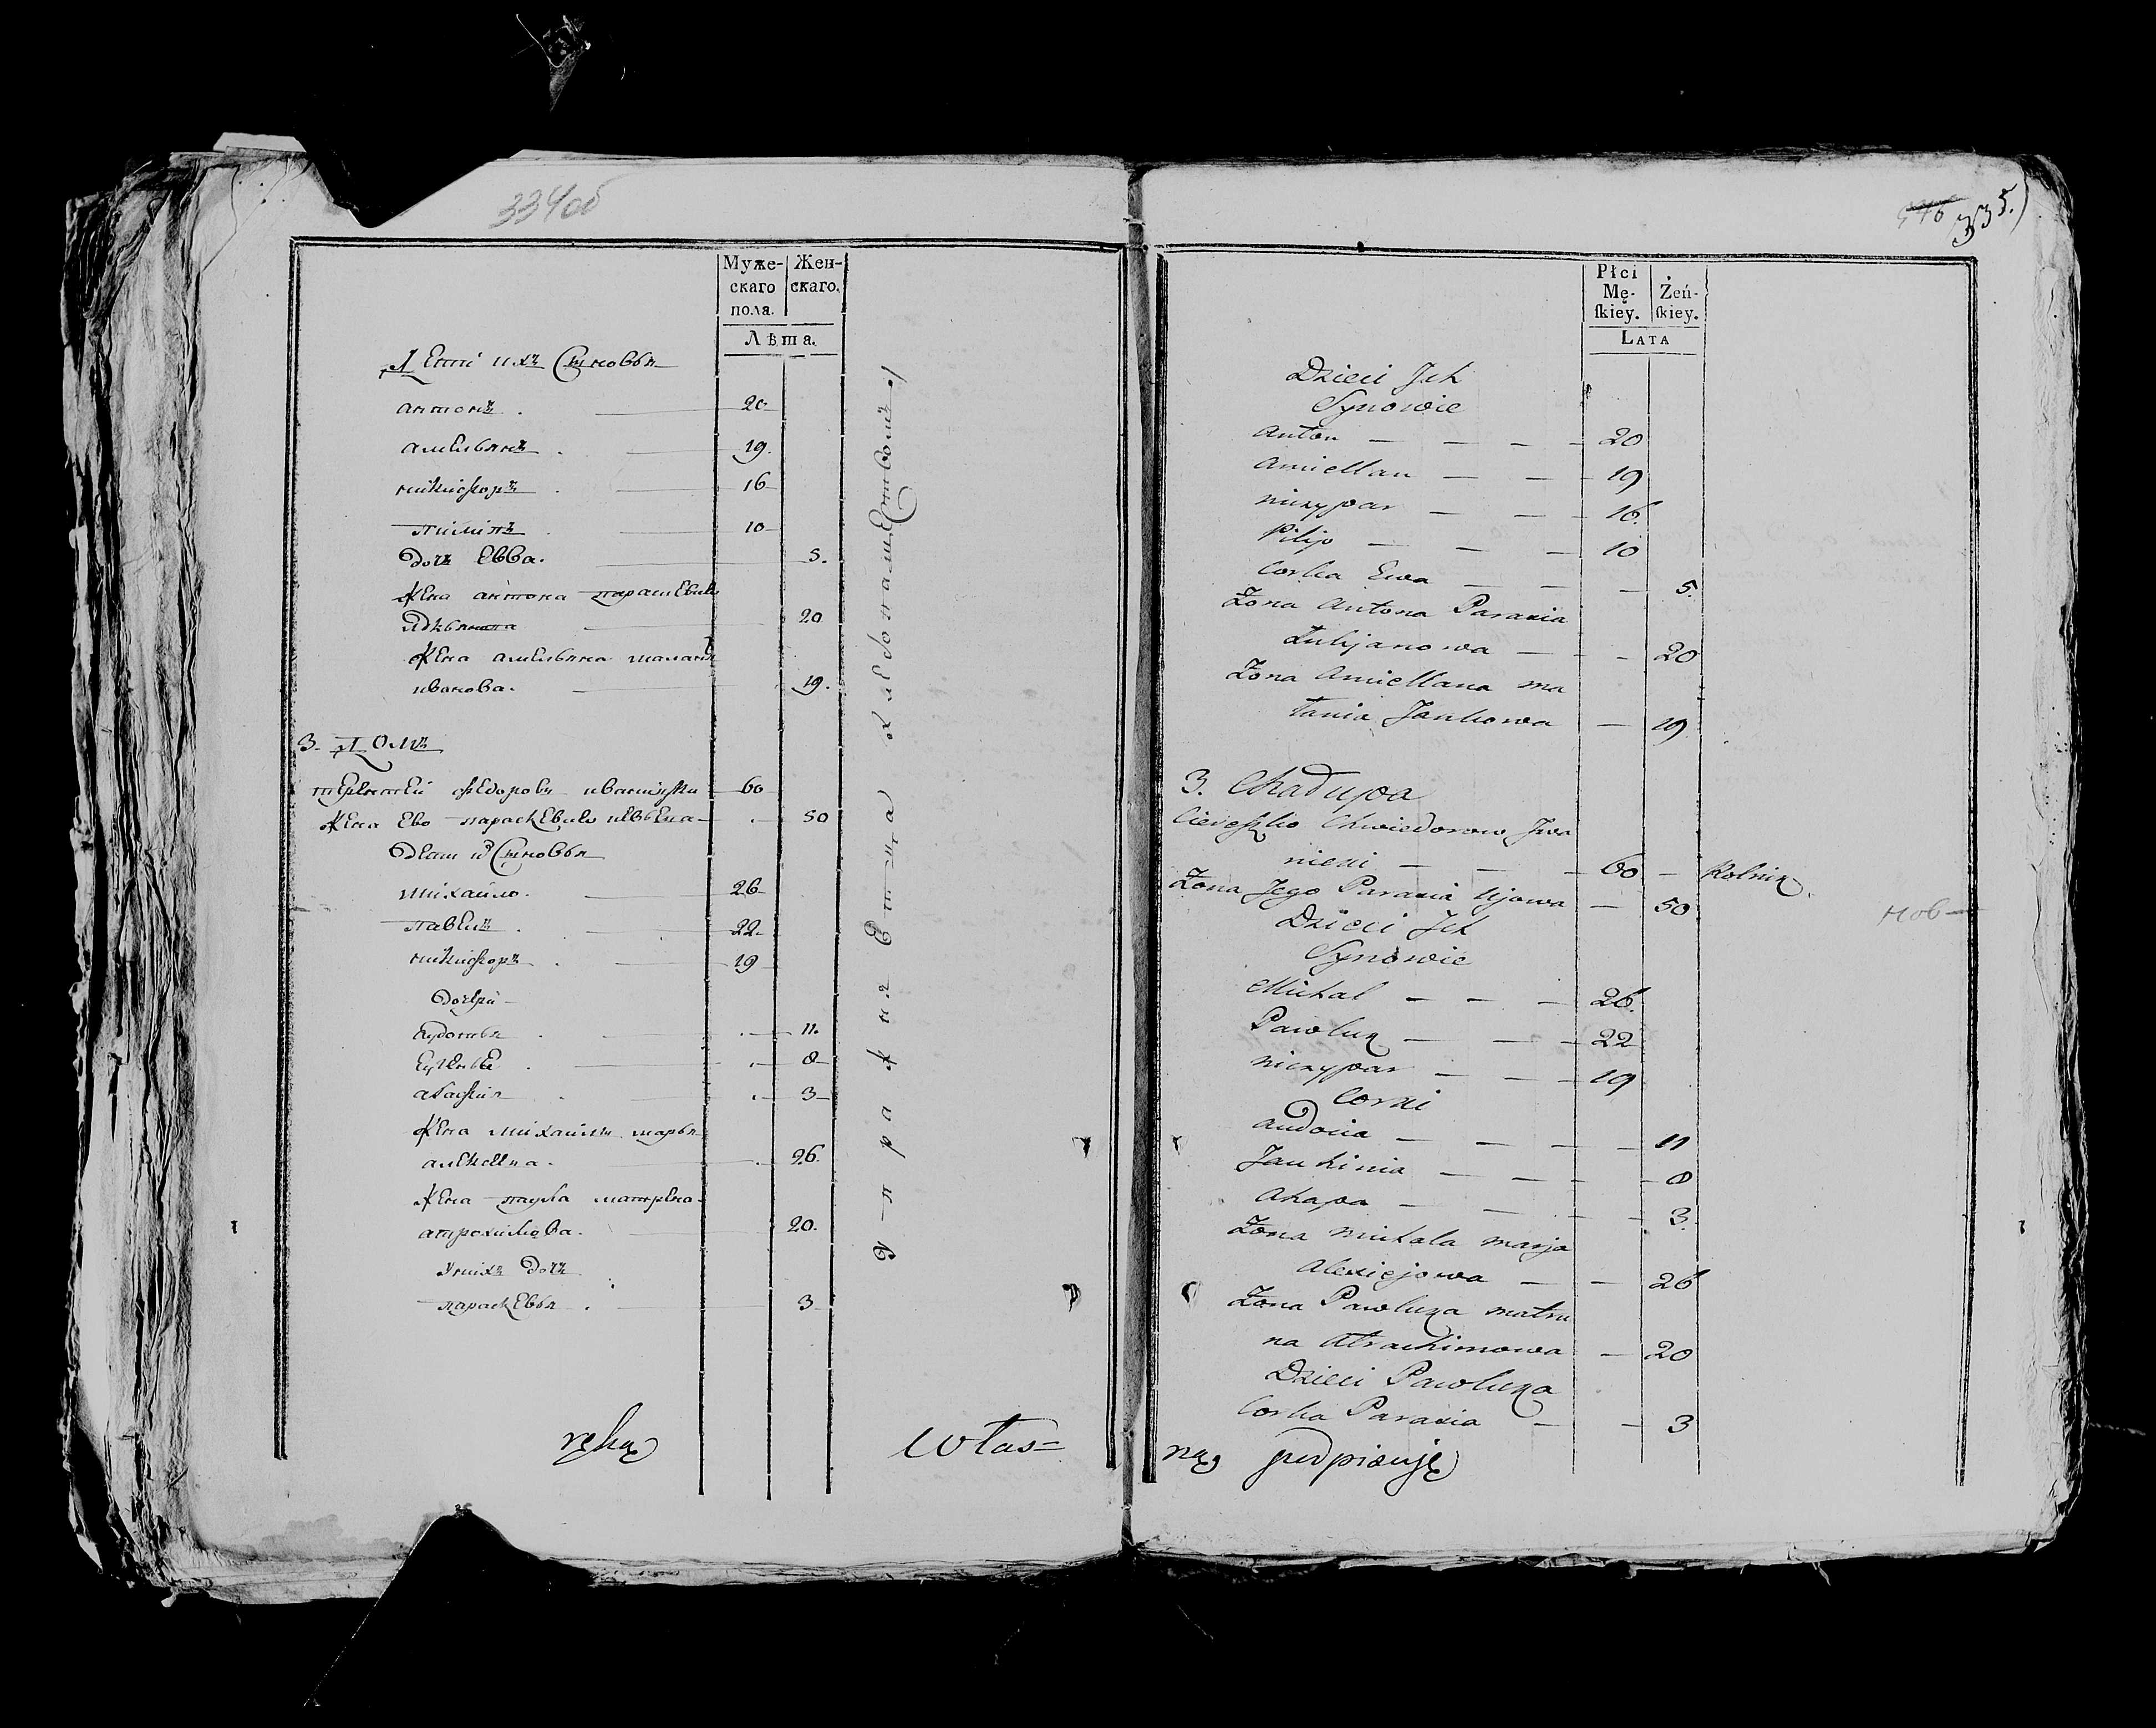 334об
Муже-
скаго
пола.
Жен-
скаго.
Лѣта.
Дети ихъ Сыновья
антонъ . 20
амельянъ . 19.
никифоръ . 16
пилипъ . 10
дочъ Евва. 5.
Жена антона парасковья
20
Жена амельяна маланья
иванова. 19.
3. Домъ
терентей федоровъ 60
Жена Ево 50
Дети их Сыновья
михайло. 26
павелъ . 22
никифоръ . 19
дочери
еудокья . 11.
8
агафия . 3
Жена михайлы марья
алексеева. 26.
Жена павла матрена
атрохимова. 20.
у них дочъ
парасковья . 3
ręką
włas=
446 335.
Płci
Mę-
ſkiey.
Żeń-
ſkiey.
LATA
Dzieci Jch
Synowie
Anton — — — 20
Amiellan — — 19
nikypar — — 16.
Pilip — — — 10
Corka Ewa — — — 5.
Żona Antona Paraxia
Łukjanowa — — 20
Żona Amiellana ma
łania Jankowa — 19
3. Chałupa
Ciereszko Chwiedorow Jwa
nicki — — — 60 — Rolnik
Żona Jego Paraxia Ujowa — 50
нов—
Dzieci Jch
Synowie
Michał — — — 26.
Pawluk — — — 22
nikypar — — — 19
Corki
audocia — — — — 11
Jauhinia — — — — 8
Ahapa — — — — 3.
Żona Michała marja
Alexiejowa — — 26
Żona Pawluka matru
na Atrachimowa — 20
Dzieci Pawluka
Corka Paraxia — — 3
ną, podpisuję